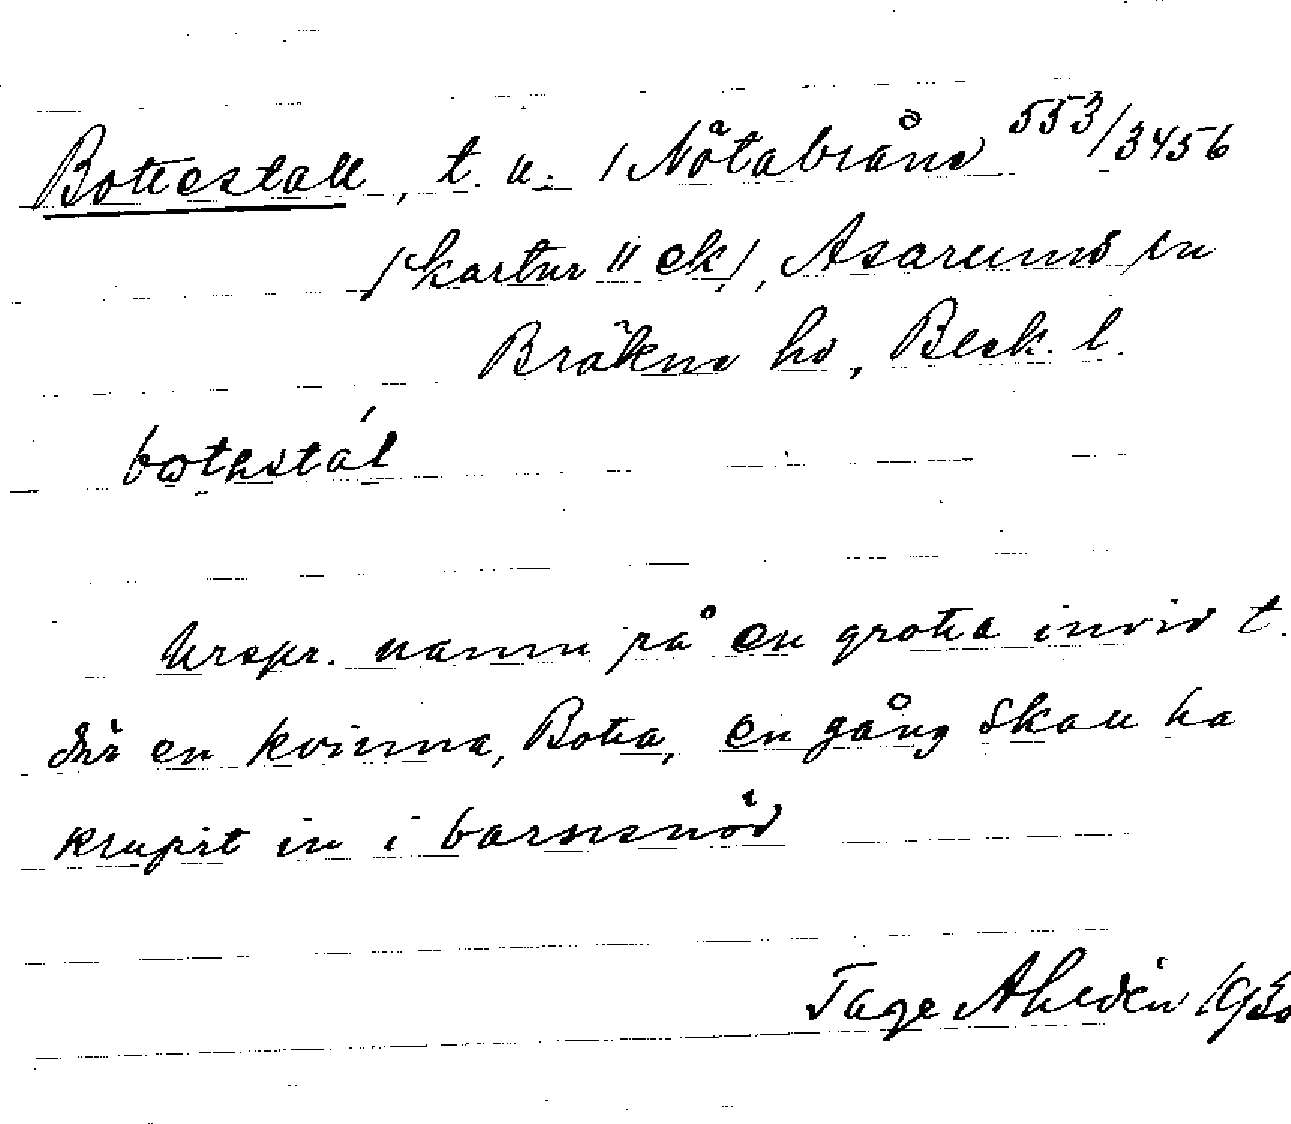 Bottestall, t. u. / Nötabråne 553/3456
/kartur "ek/, Asarums sn
Bräkne hd, Blek. l.
botestál
Urspr. namn på en grotta invid t.
där en kvinna, Bota, en gång skall ha
krupit in i barnsnöd
Tage Ahldén 1930